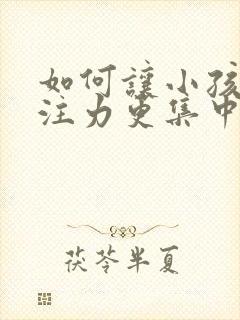 如何讓小孩
注力更集中
茯苓半夏